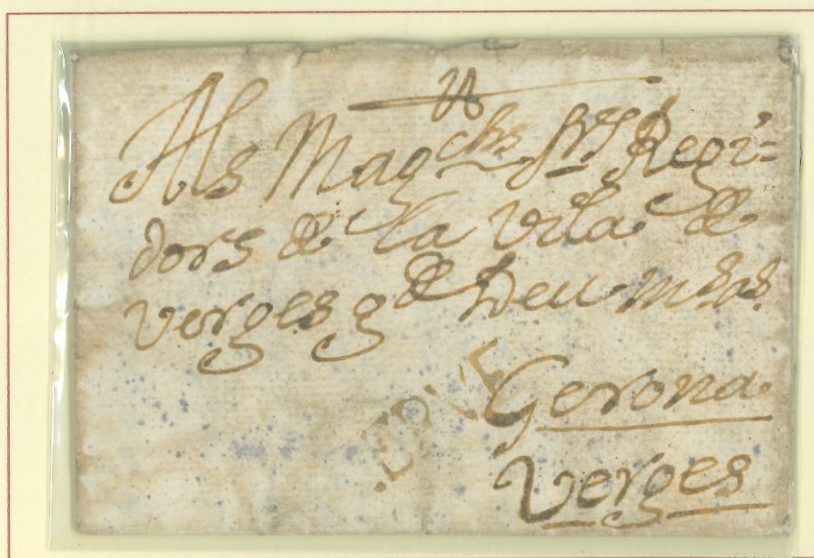 Als Mag.chs Srs Regi=
dors de la vila de
verges g.de Deu m.s as.
Gerona
verges